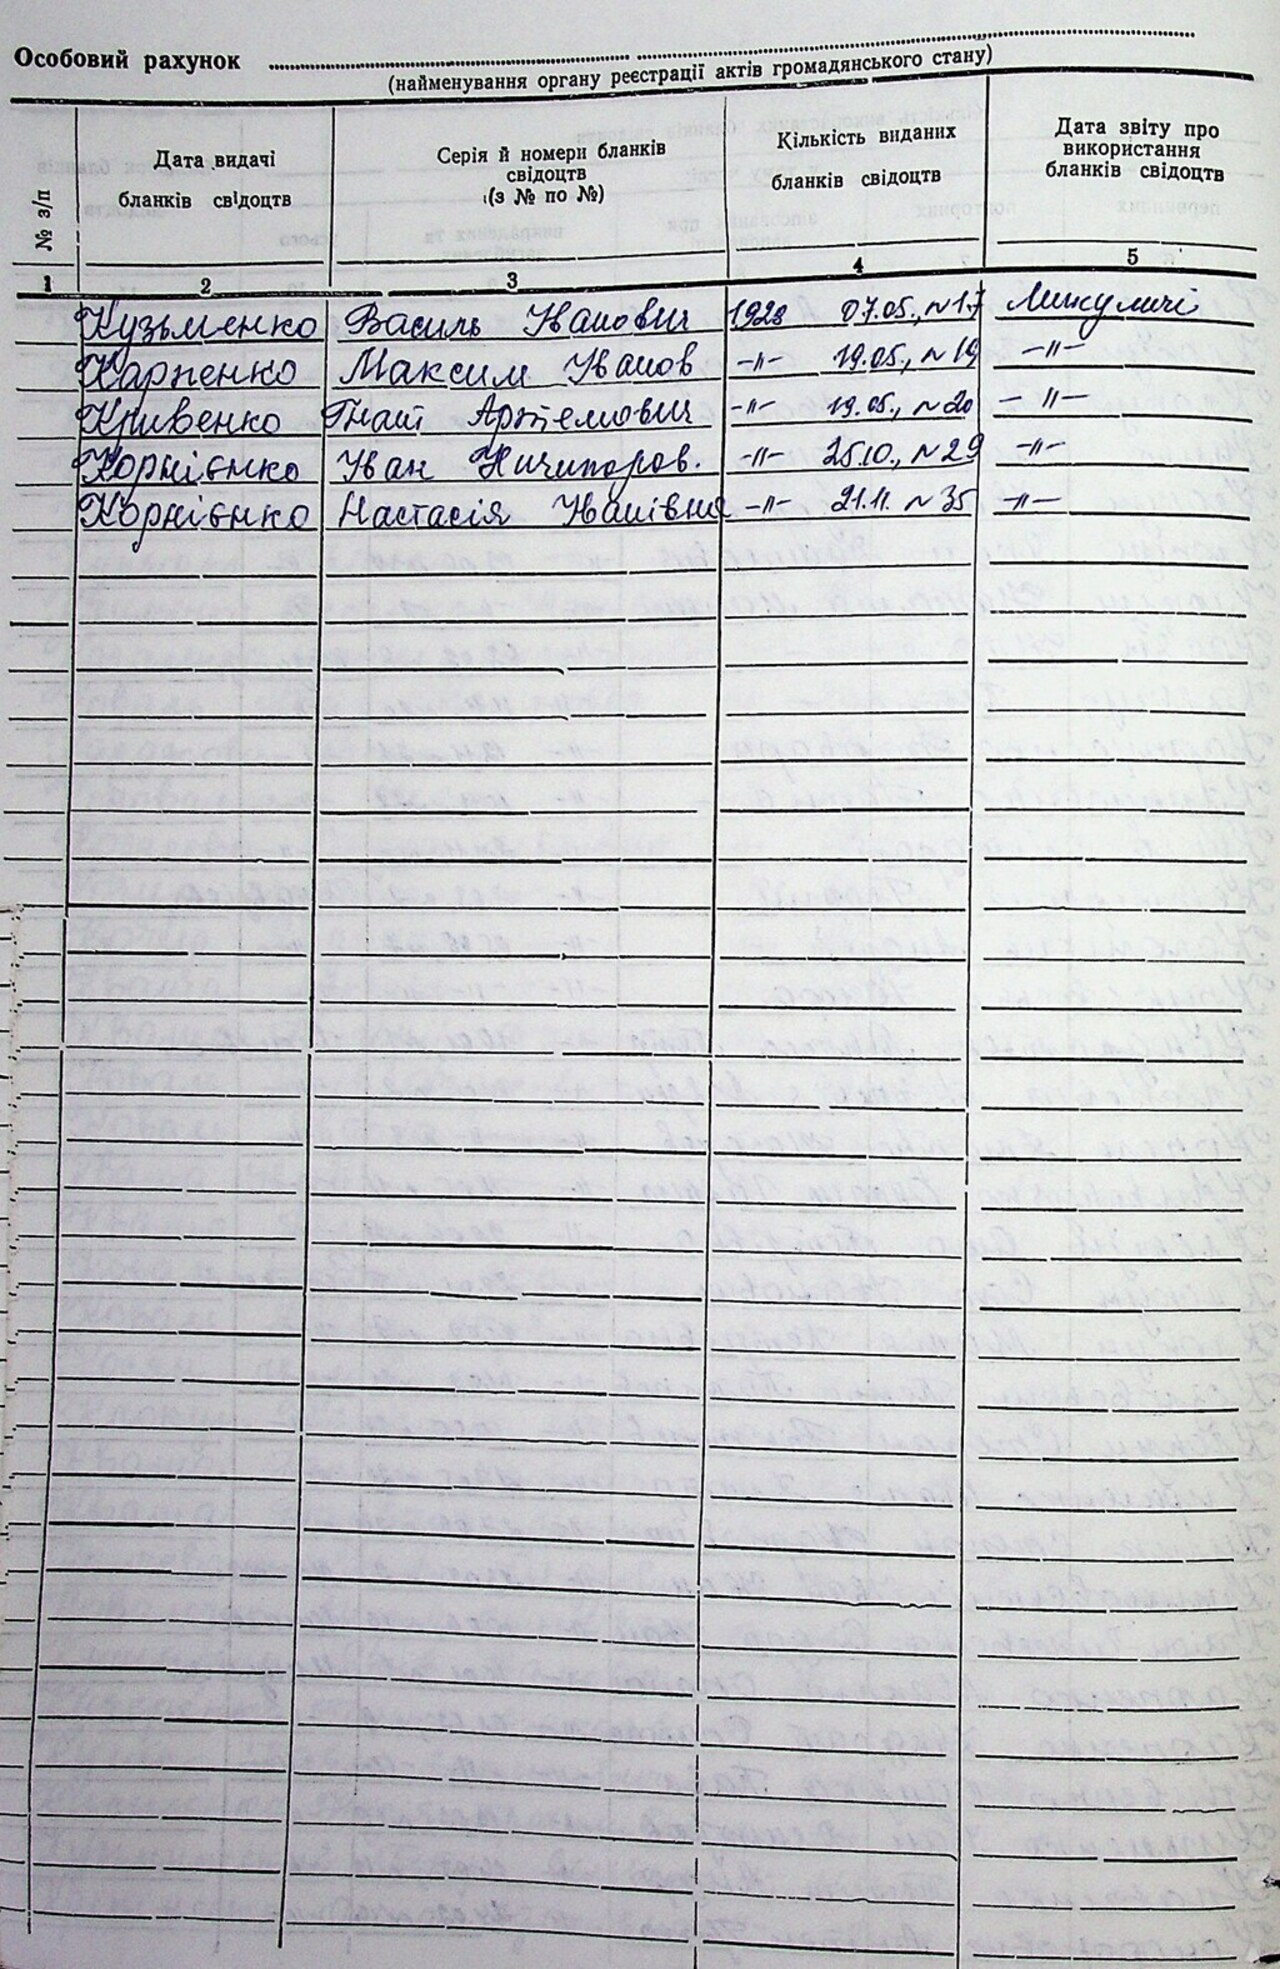 Особовий рахунок
(найменування органу реєстрації актів громадянського стану)
№ з/п
Дата видачі
бланків свідоцтв
Серія й номери бланків
свідоцтв
(з № по №)
Кількість виданих
бланків свідоцтв
Дата звіту про
використання
бланків свідоцтв
1 2 3 4 5
Кузьменко Василь Іванович 1928 07.05., №17 Микуличі
Карпенко Максим Іванов -"- 19.05., №19 -"-
Кривенко Гнат Артемович -"- 19.05., №20 -"-
Корнієнко Іван Ничипоров. -"- 25.10., №29 -"-
Корнієнко Настасія Іванівна -"- 21.11. №35 -"-